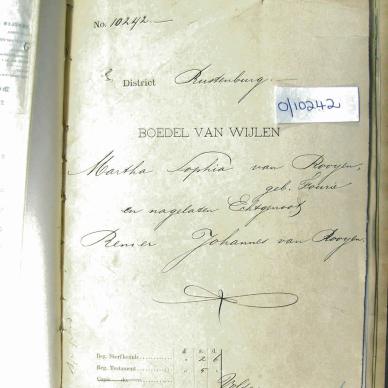 No. 10242.
District Rustenburg.
0/10242
BOEDEL VAN WIJLEN
Martha Sophia van Rooyen,
geb. Fourie
en nagelaten Echtgenoot
Renier Johannes van Rooyen.
£ s. d.
Reg. Sterfkennis 2 6
Reg. Testament 5
Copie do.